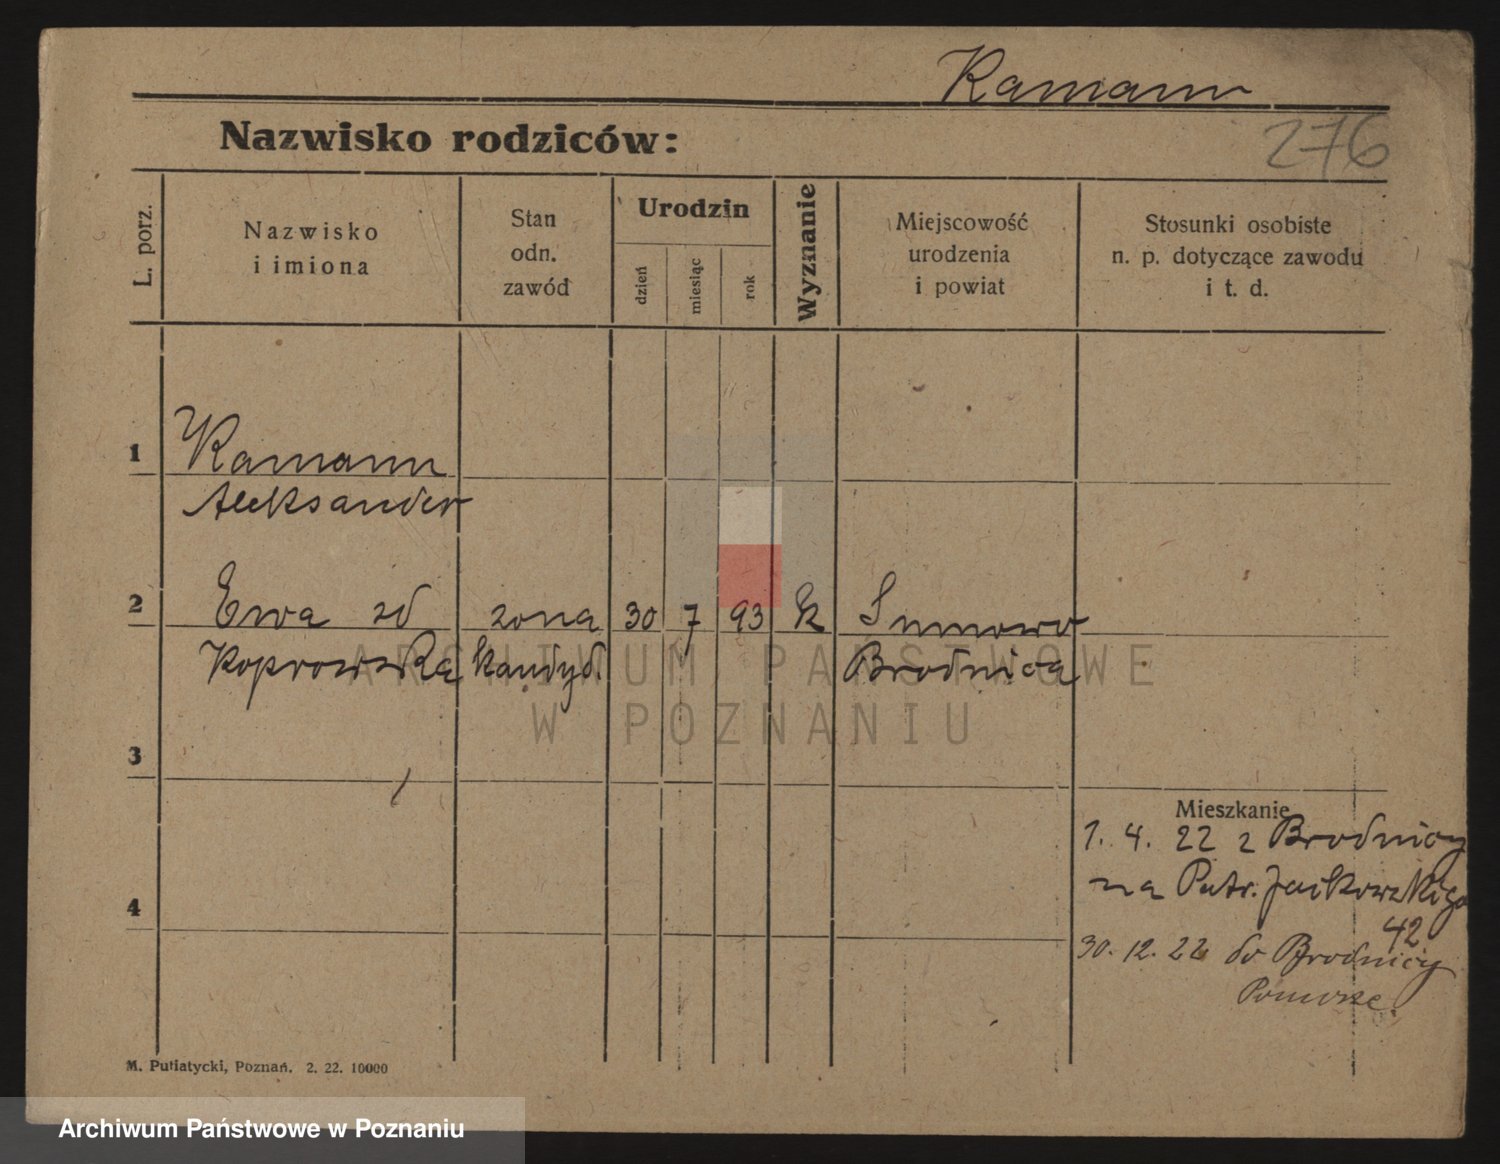 Kamann
Nazwisko rodziców:
276
L. porz.
Nazwisko
i imiona
Stan
odn.
zawód
Urodzin
dzień
miesiąc
rok
Wyznanie
Miejscowość
urodzenia
i powiat
Stosunki osobiste
n. p. dotyczące zawodu
i t. d.
1
Kamann
Aleksander
2
Ewa zd
zona
30
7
93
k
Sumowo
Koprowska
kandyd.
Brodnica
ARCHIWUM PAŃSTWOWE
W POZNANIU
3
Mieszkanie
1. 4. 22 z Brodnicy
na Patr. Jackowskigo
42
4
30. 12. 22 do Brodnicy
Pomorze.
M. Putiatycki, Poznań. 2. 22. 10000
Archiwum Państwowe w Poznaniu